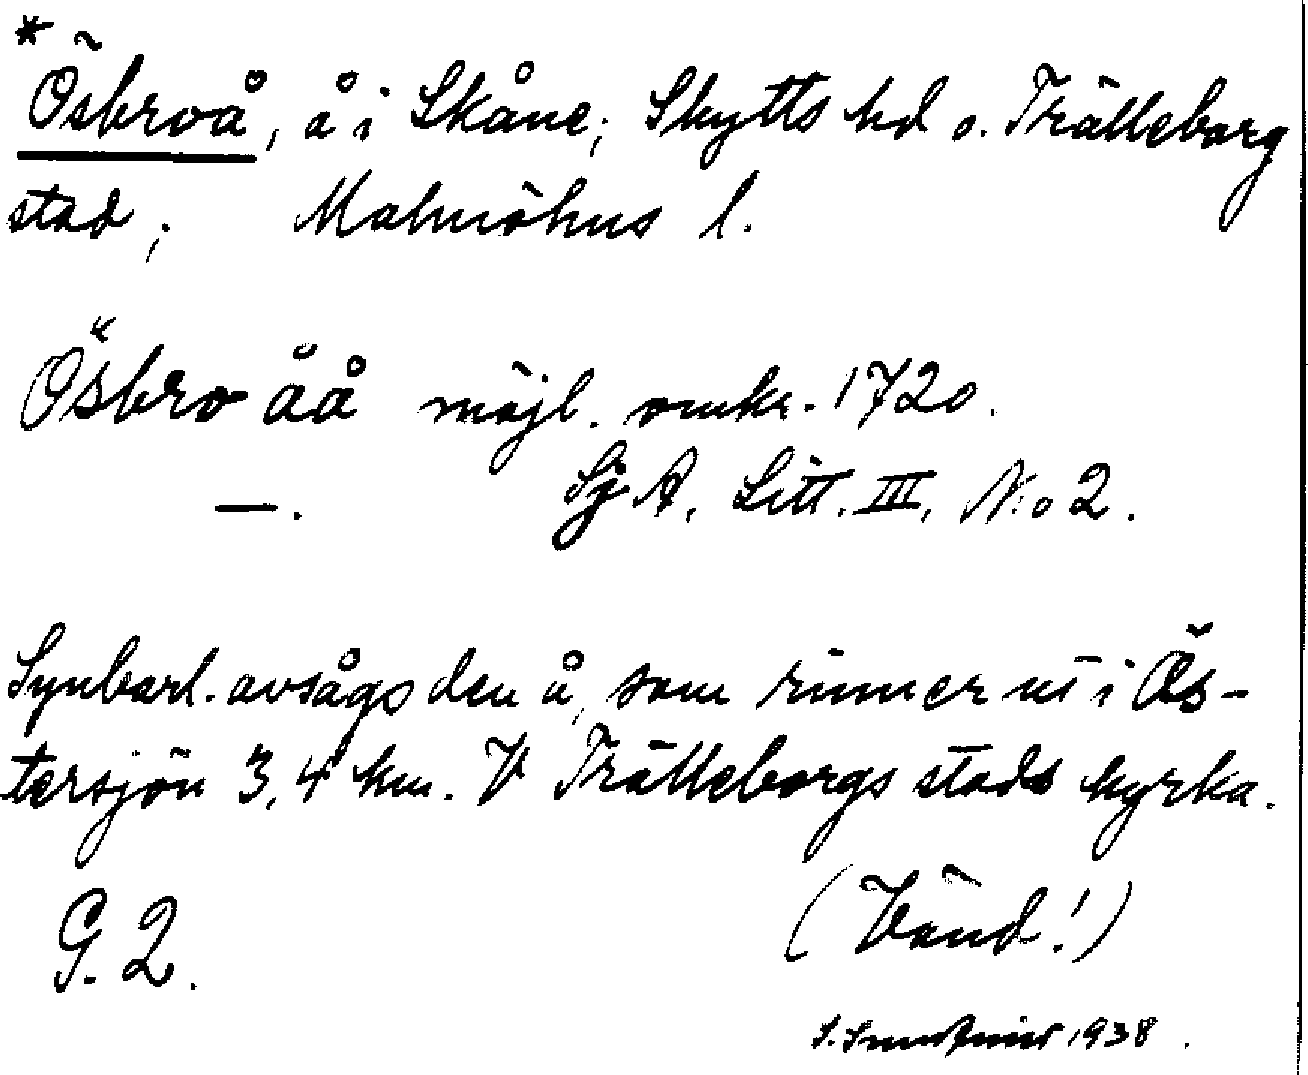 * Ösbroå, å i Skåne; Skytts hd o. Trälleborg
stad; Malmöhus l.
Ösbro åå möjl. omkr. 1720.
—. Sj A, Litt. III, N:o 2.
Synbarl. avsågs den å, som rinner ut i Ös-
tersjön 3,4 km. V Trälleborgs stads kyrka.
G. 2. (Vänd!)
1938.